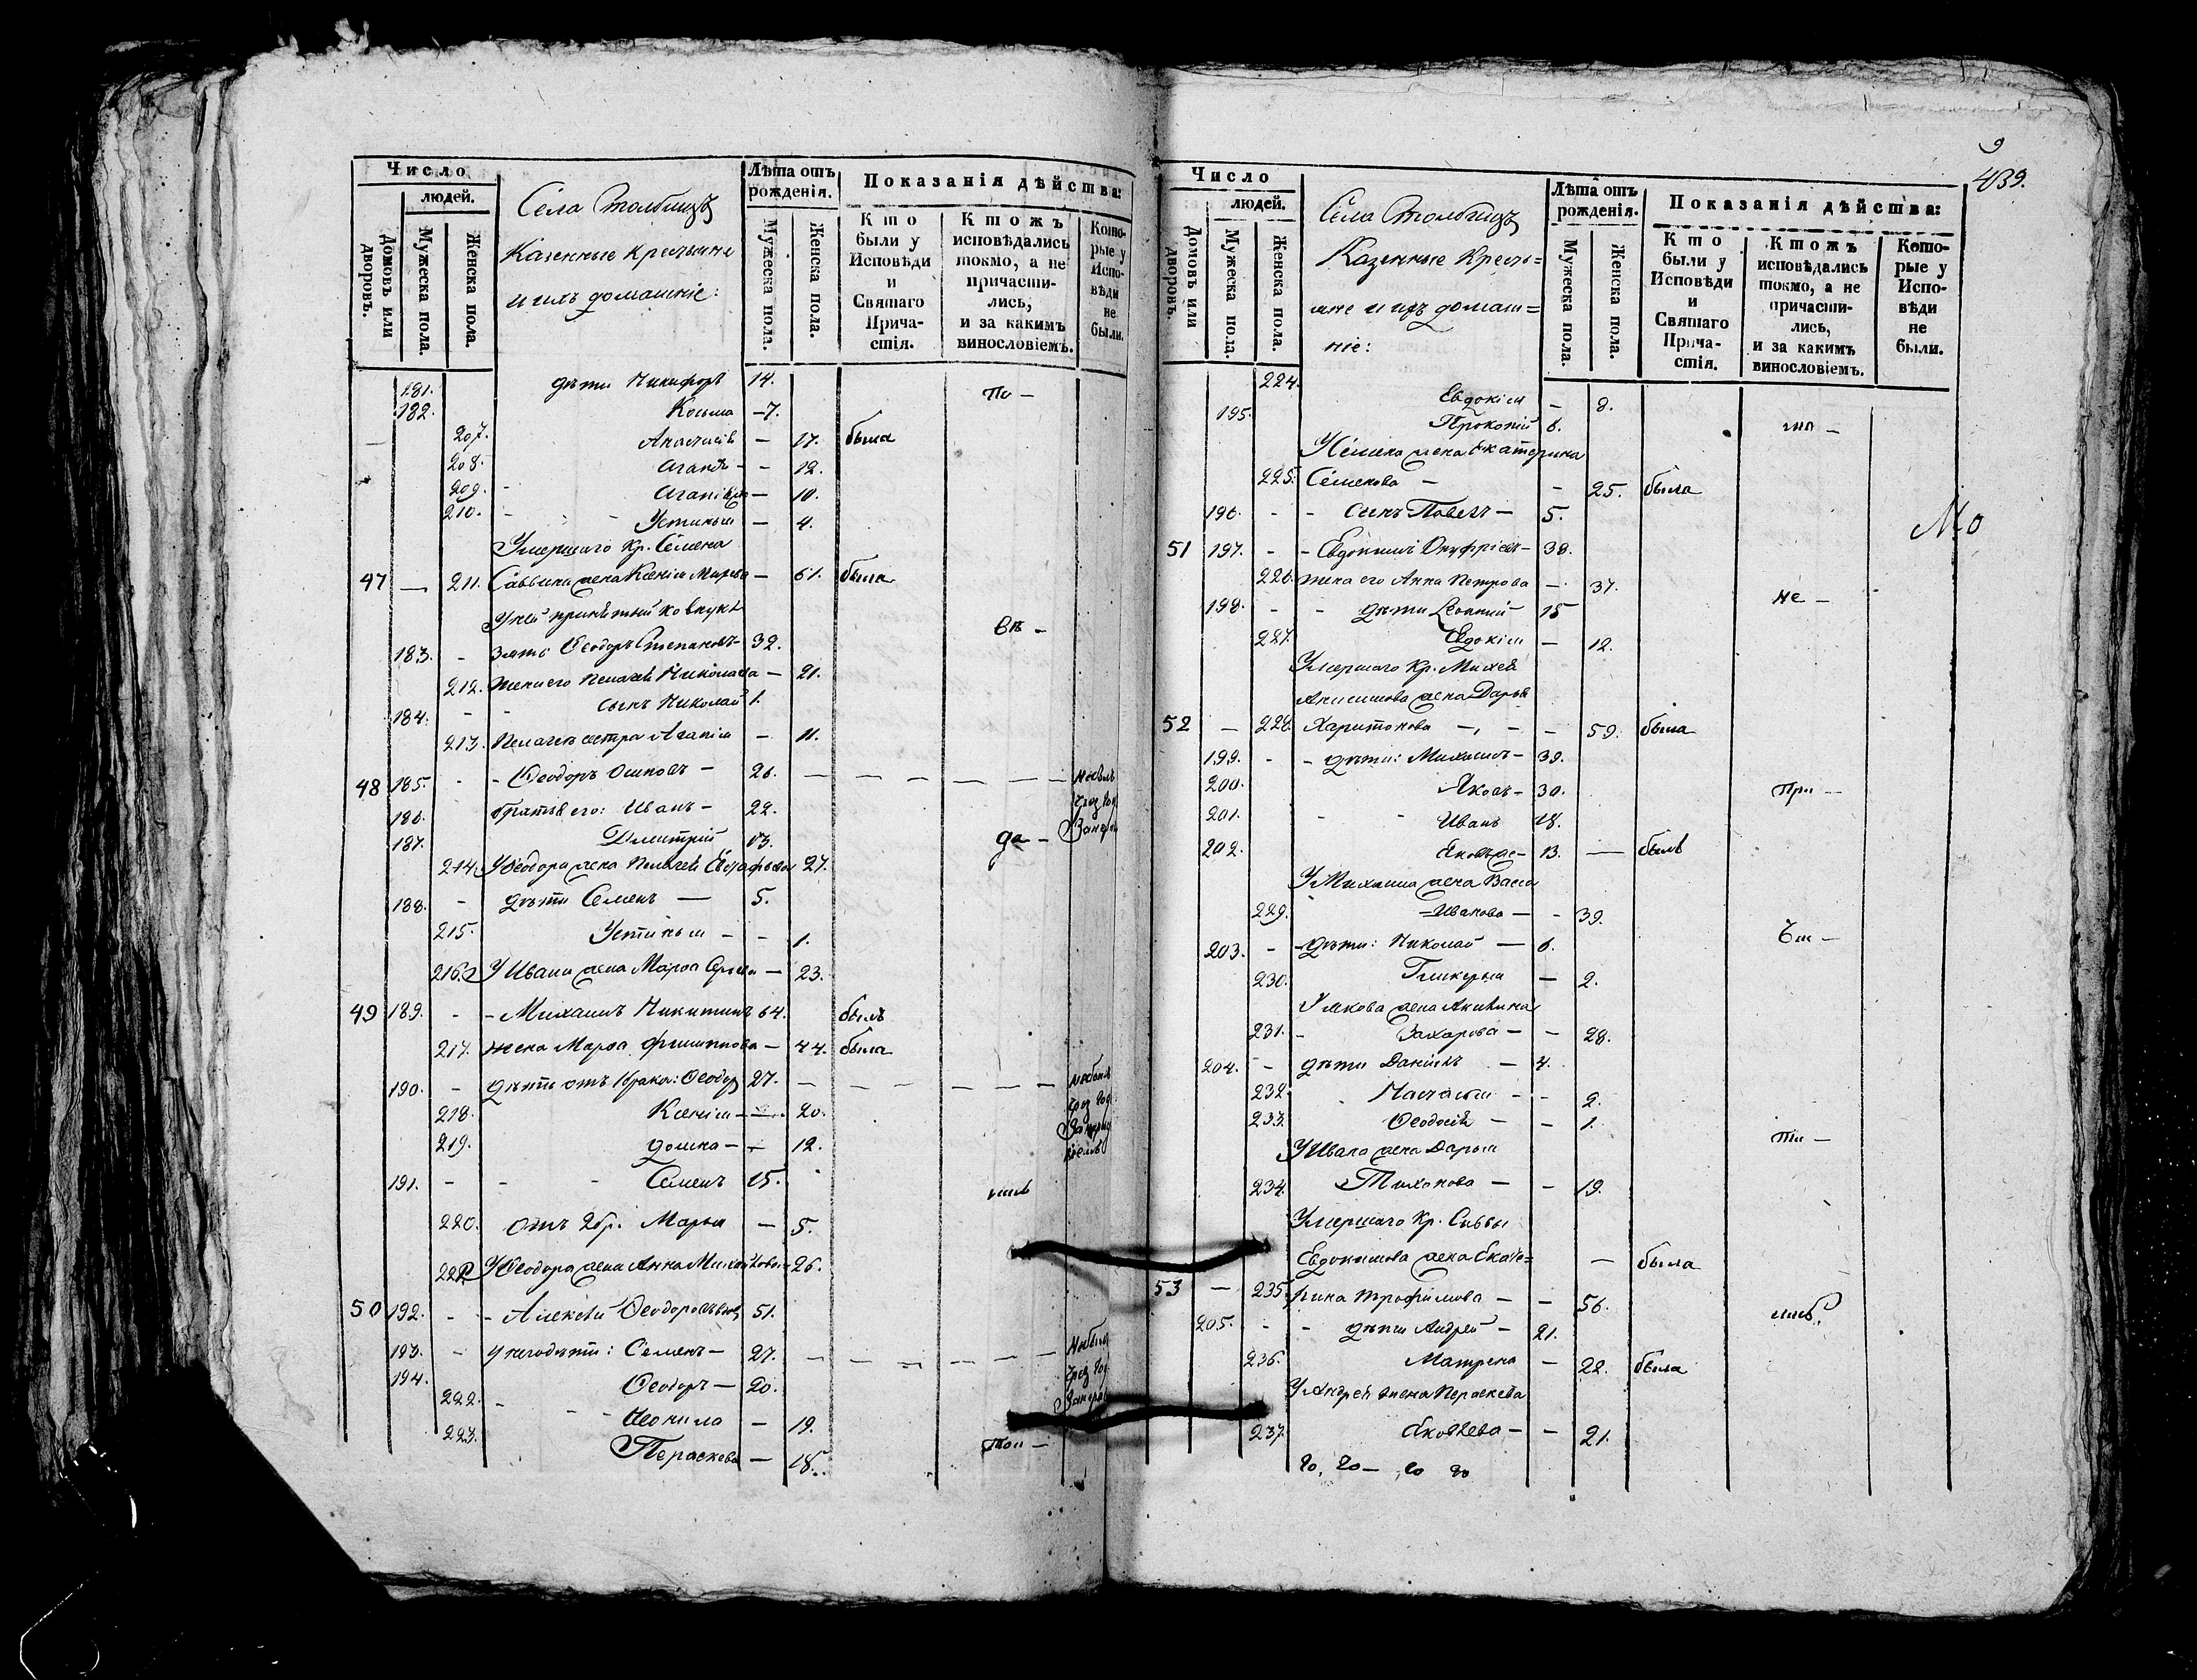 Число
людей.
Домовъ или дворовъ.
Мужеска пола.
Женска пола.
Села Толбицъ
Казенные крестьяне
и ихъ домашніе:
Лѣта отъ рожденія.
Мужеска пола.
Женска пола.
Показанія дѣйства:
Кто были у Исповѣди и Святаго Причастія.
Ктожъ исповѣдались токмо, а не причастились, и за какимъ винословіемъ.
Которые у Исповѣди не были.
181. дѣти Никифоръ 14. По —
182. Косьма — 7.
207. Анастасія — 17. была
208. Агафія — 12.
209. — 10.
210. Устинья — 4.
Умершаго Кр. Семена
47 — 211. Саввина жена Ксенія — 61. была
У ней принятый во внука
183. зять Ѳеодоръ Степановъ 32. вѣ —
212. жена его Пелагея Николаева — 21.
184. сынъ Николай 1.
213. Пелагеи сестра Агапія — 11.
48 185. Ѳеодоръ — 26.
186. братья его: Иванъ — 22.
187. Дмитрій 13. да —
214. У Ѳеодора жена Пелагея 27.
188. дѣти Семенъ — 5.
215. Устинья — — 1.
216. У Ивана жена Марѳа — 23.
49 189. Михаилъ Никитинъ 64. былъ
217. жена Марѳа Филиппова — 44. была
190. дѣти отъ 1 брака: Ѳеодоръ 27.
218. Ксенія — 20.
219. Домна — 12.
191. Семенъ 15.
220. отъ 2 бр. Марья — 5.
221. У Ѳеодора жена Анна Михайлова — 26.
50 192. Алексѣй 51.
193. у него дѣти: Семенъ — 27.
194. Ѳеодоръ — 20.
222. Леонила — 19.
223. Параскева — 18. Тои —
9
439.
Число
людей.
Домовъ или дворовъ.
Мужеска пола.
Женска пола.
Села Толбицъ
Казенные Кресть=
яне и ихъ домаш=
ніе:
Лѣта отъ рожденія.
Мужеска пола.
Женска пола.
Показанія дѣйства:
Кто были у Исповѣди и Святаго Причастія.
Ктожъ исповѣдались токмо, а не причастились, и за какимъ винословіемъ.
Которые у Исповѣди не были.
224. Евдокія — 8.
195. Прокопій 6. мо —
У Семена жена Екатерина
225. Семенова — — 25. была
196. сынъ Павелъ — 5.
51 197. Евдокимъ Онуфріевъ — 38.
226. жена его Анна Петрова — 37.
198. дѣти Леонтій 15 не —
227. Евдокія — 12.
Умершаго Кр. Михея
Анисимова жена Дарья
52 — 228. Харитонова — 59. была
199. дѣти: Михаилъ — 39.
200. Яковъ — 30. При —
201. Иванъ 18.
202. Яковъ же — 13. — былъ
У Михаила жена Васса
229. =Иванова — — 39.
203. дѣти: Николай — 6.
230. Гликерья — 2.
У Якова жена Акилина
231. Захарова — — 28.
204. дѣти Даніилъ — 4.
232. Настасья — — 2.
233. Ѳеодосія — — 1. ти —
У Ивана жена Дарья
234. Тихонова — — 19.
Умершаго Кр. Саввы
Евдокимова жена Екате= — была
53 — 235. рина Трофимова — — 56.
205. дѣти Андрей — 21.
236. Матрена — 22. была
У Андрея жена Параскева
237. Яковлева — — 21.